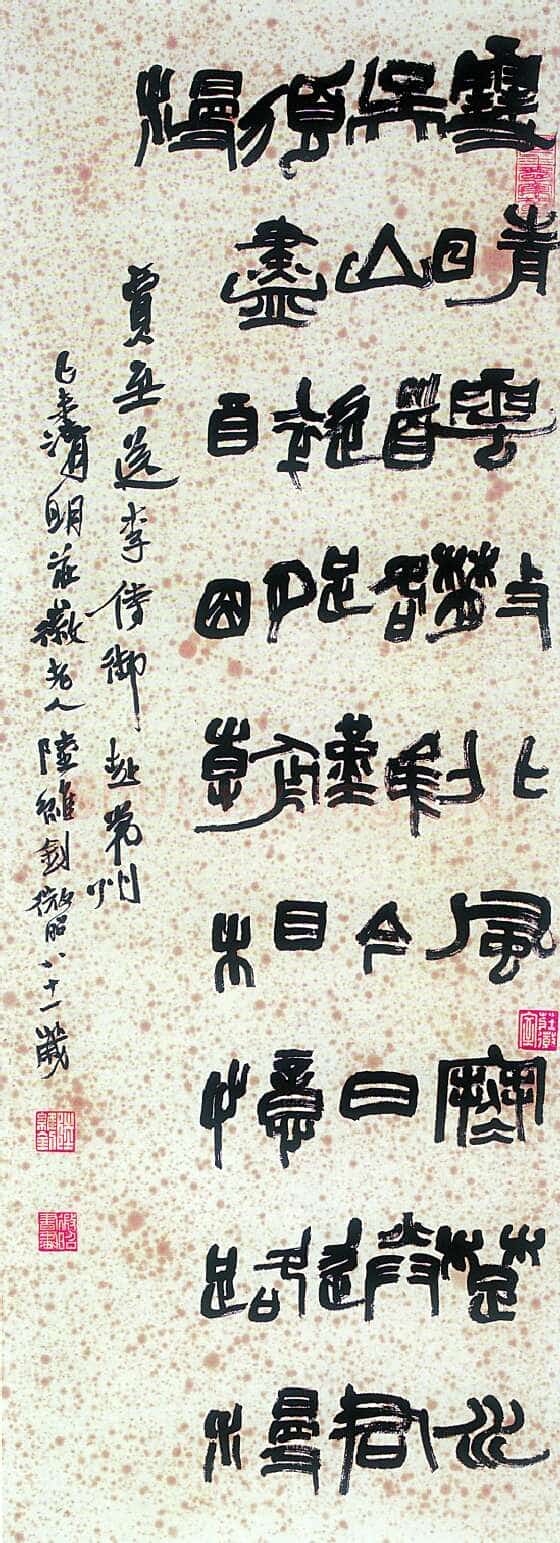 雪晴雲散北風寒楚水
吳山道路難今日送君
須盡醉明朝相憶路漫
漫
賈至送李侍御赴常州
己未清明莊徽老人陸維釗微昭八十一歲
莊徽室
陸維釗
微昭書畫